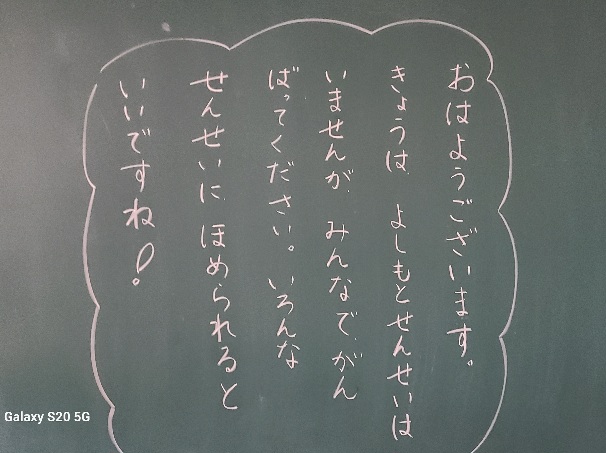 おはようございます。
きょうは よしもとせんせいは
いませんが、みんなで、がん
ばってください。いろんな
せんせいに、ほめられると
いいですね!
Galaxy S20 5G